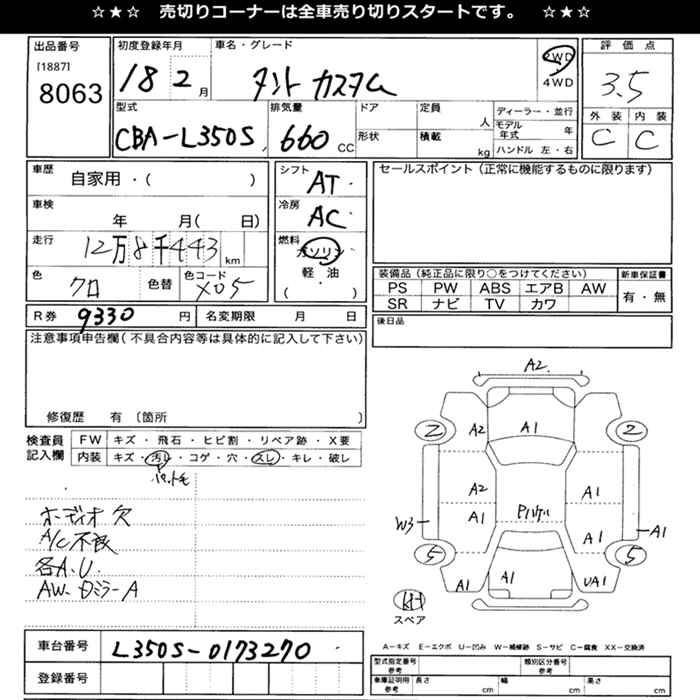 ☆★☆ 売切りコーナーは全車売り切りスタートです。 ☆★☆
出品番号 初度登録年月 車名・グレード 2WD 評価点
[1887] 8063 18 2 月 タント カスタム 4WD 3.5
型式 排気量 ドア 定員 人 ディーラー・並行 外装 内装
CBA-L350S 660 CC 形状 積載 kg モデル年式 年 C C
ハンドル 左・右
車歴 自家用・( ) シフト AT セールスポイント(正常に機能するものに限ります)
車検 年 月( 日) 冷房 AC
走行 12万8千443 km 燃料 ガソリン
軽・油
( )
色 クロ 色替 色コード X05
装備品(純正品に限り○をつけてください) 新車保証書
PS PW ABS エアB AW 有・無
SR ナビ TV カワ
R券 9330 円 名変期限 月 日 後日品
注意事項申告欄(不具合内容等は具体的に記入して下さい)
修復歴 有 〔箇所 〕
検査員記入欄 FW キズ・飛石・ヒビ割・リペア跡・X要
内装 キズ・汚レ・コゲ・穴・スレ・キレ・破レ
オーディオ欠
A/C不良
各A.U
AW.
ミラーA
A2
2 A2 A1 2
A2 A1
W3 A1 A1 A1
5 5
A1 A1 UA1
スペア
車台番号 L350S-0173270
登録番号
A-キズ E-エクボ U-凹み W-補修跡 S-サビ C-腐食 XX-交換済
型式指定番号 参考 類別区分番号 参考
車庫証明用 参考 長さ cm 幅 cm 高さ cm